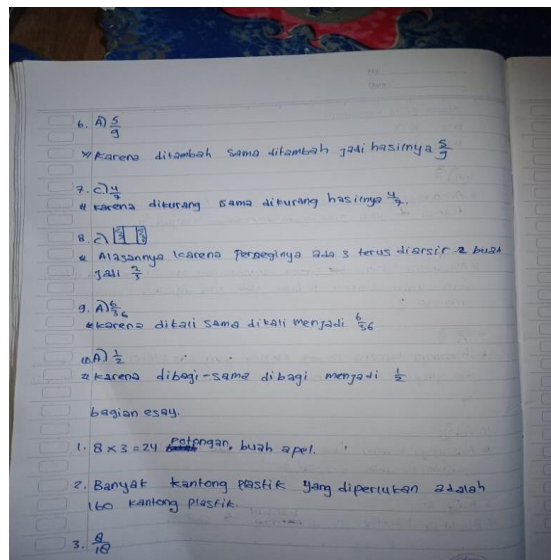 6. A) 5/9
* Karena ditambah sama ditambah jadi hasilnya 5/9
7. C) 4/7
* Karena dikurang sama dikurang hasilnya 4/7.
8. C)
* Alasannya karena Perseginya ada 3 terus diarsir 2 buah
jadi 2/3
9. A) 6/36
* Karena dikali sama dikali menjadi 6/36
10. A) 1/2
* Karena dibagi-sama dibagi menjadi 1/2
bagian esay.
1. 8 × 3 = 24 potongan, buah apel.
2. Banyak kantong plastik yang diperlukan adalah
160 kantong plastik.
3. 8/18